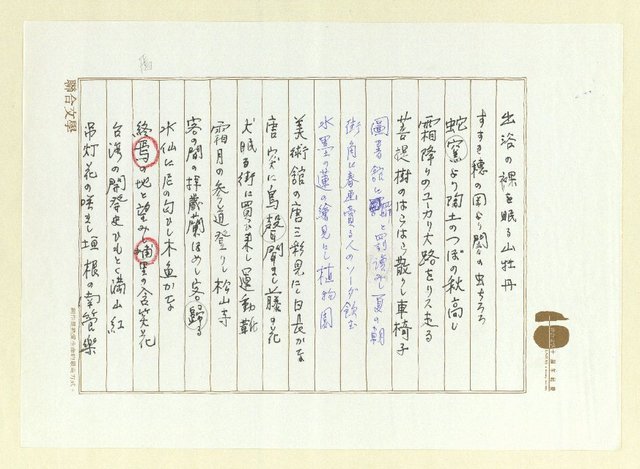 出浴の裸を眠る山牡丹
すすき穂の国より闇の虫ちろろ
蛇窯より陶土のつぼの秋高し
霜降りのユーカリ大路をリス走る
菩提樹のはらはら散りし車椅子
圖書館に 罰読みし夏の朝
街角に春画賣る人のソーダ飲む
水墨の蓮の繪見とし植物園
美術館の唐三彩見にし日長かな
唐突に鳥聲聞きし藤の花
犬眠る街に買ひ来し運動靴
霜月の参道登りし松山寺
客の間の拝歳蘭ほめし客帰る
水仙に尼の匂ひし木魚かな
終焉の地と望みし埔里の含笑花
台湾の開発史ひもとく満山紅
吊灯花の咲きし垣根の南管樂
聯合文學